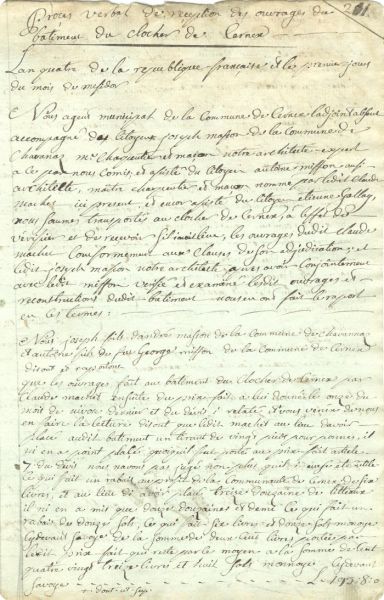 Proces verbal de reception des ouvrages du 201
batiment du clocher de Cernex
Lan quatre de la republique francaise et le premier jour
du mois de messidor
Nous agent municipal de la Commune de Cernex ladjoint absent
accompagné des Citoyens joseph masson de la Commune de
Chavannaz me Charpentier et maçon notre architecte expert
a ce par nous Comis et assisté du Citoyen antoine misson aussi
architecte, maitre charpentier et maçon nommé par ledit Claude
machet ici present, et encor assisté du Citoyen etienne Gallay,
nous sommes transportés au cloche de Cernex, a leffet de
verifier et de recevoir sil y avoit lieu, les ouvrages dudit claude
machet Conformement aux Clauses de son adjudication; et
ledit joseph masson notre architecte apres avoir Conjointement
avec ledit misson verifié et examiné lesdits ouvrages et
reconstructions dudit batiment nous en ont fait le raport
en ces termes:
Nous joseph fils dandré masson de la Commune de chavannaz
et antoine fils de feu George misson de la Commune de Cernex
disons et raportons
que les ouvrages fait au batiment du Clocher de Cernex par
Claude machet ensuite du prix fait a lui donné le onze du
mois de nivose dernier et du devis i relaté, et vous venir de nous
en faire la lecture disons que ledit machet au lieu davoir
placé audit batiment un tirant de vingt pieds pour sonner, il
ni en a point placé, quoiquil fut porté au prix fait article
7 du devis nous navons pas jugé non plus quil i ensse été utile
ce qui fait un rabais au profit de la Communauté de Cernex de six
livres, et au lieu di avoir placé treize douzaine de litteaux
il ni en a mis que douze douzaines et demie Ce qui fait un
rabais de douze sols, ce qui fait six livres et douze sols monnoye
Cydevant savoye de la somme de deux Cent livres portée par
ledit prix fait qui reste par le moyen a la somme de Cent
quatre vingt treize livres et huit sols monnoye Cydevant
savoye L 193.8.0
+ dont il sagit